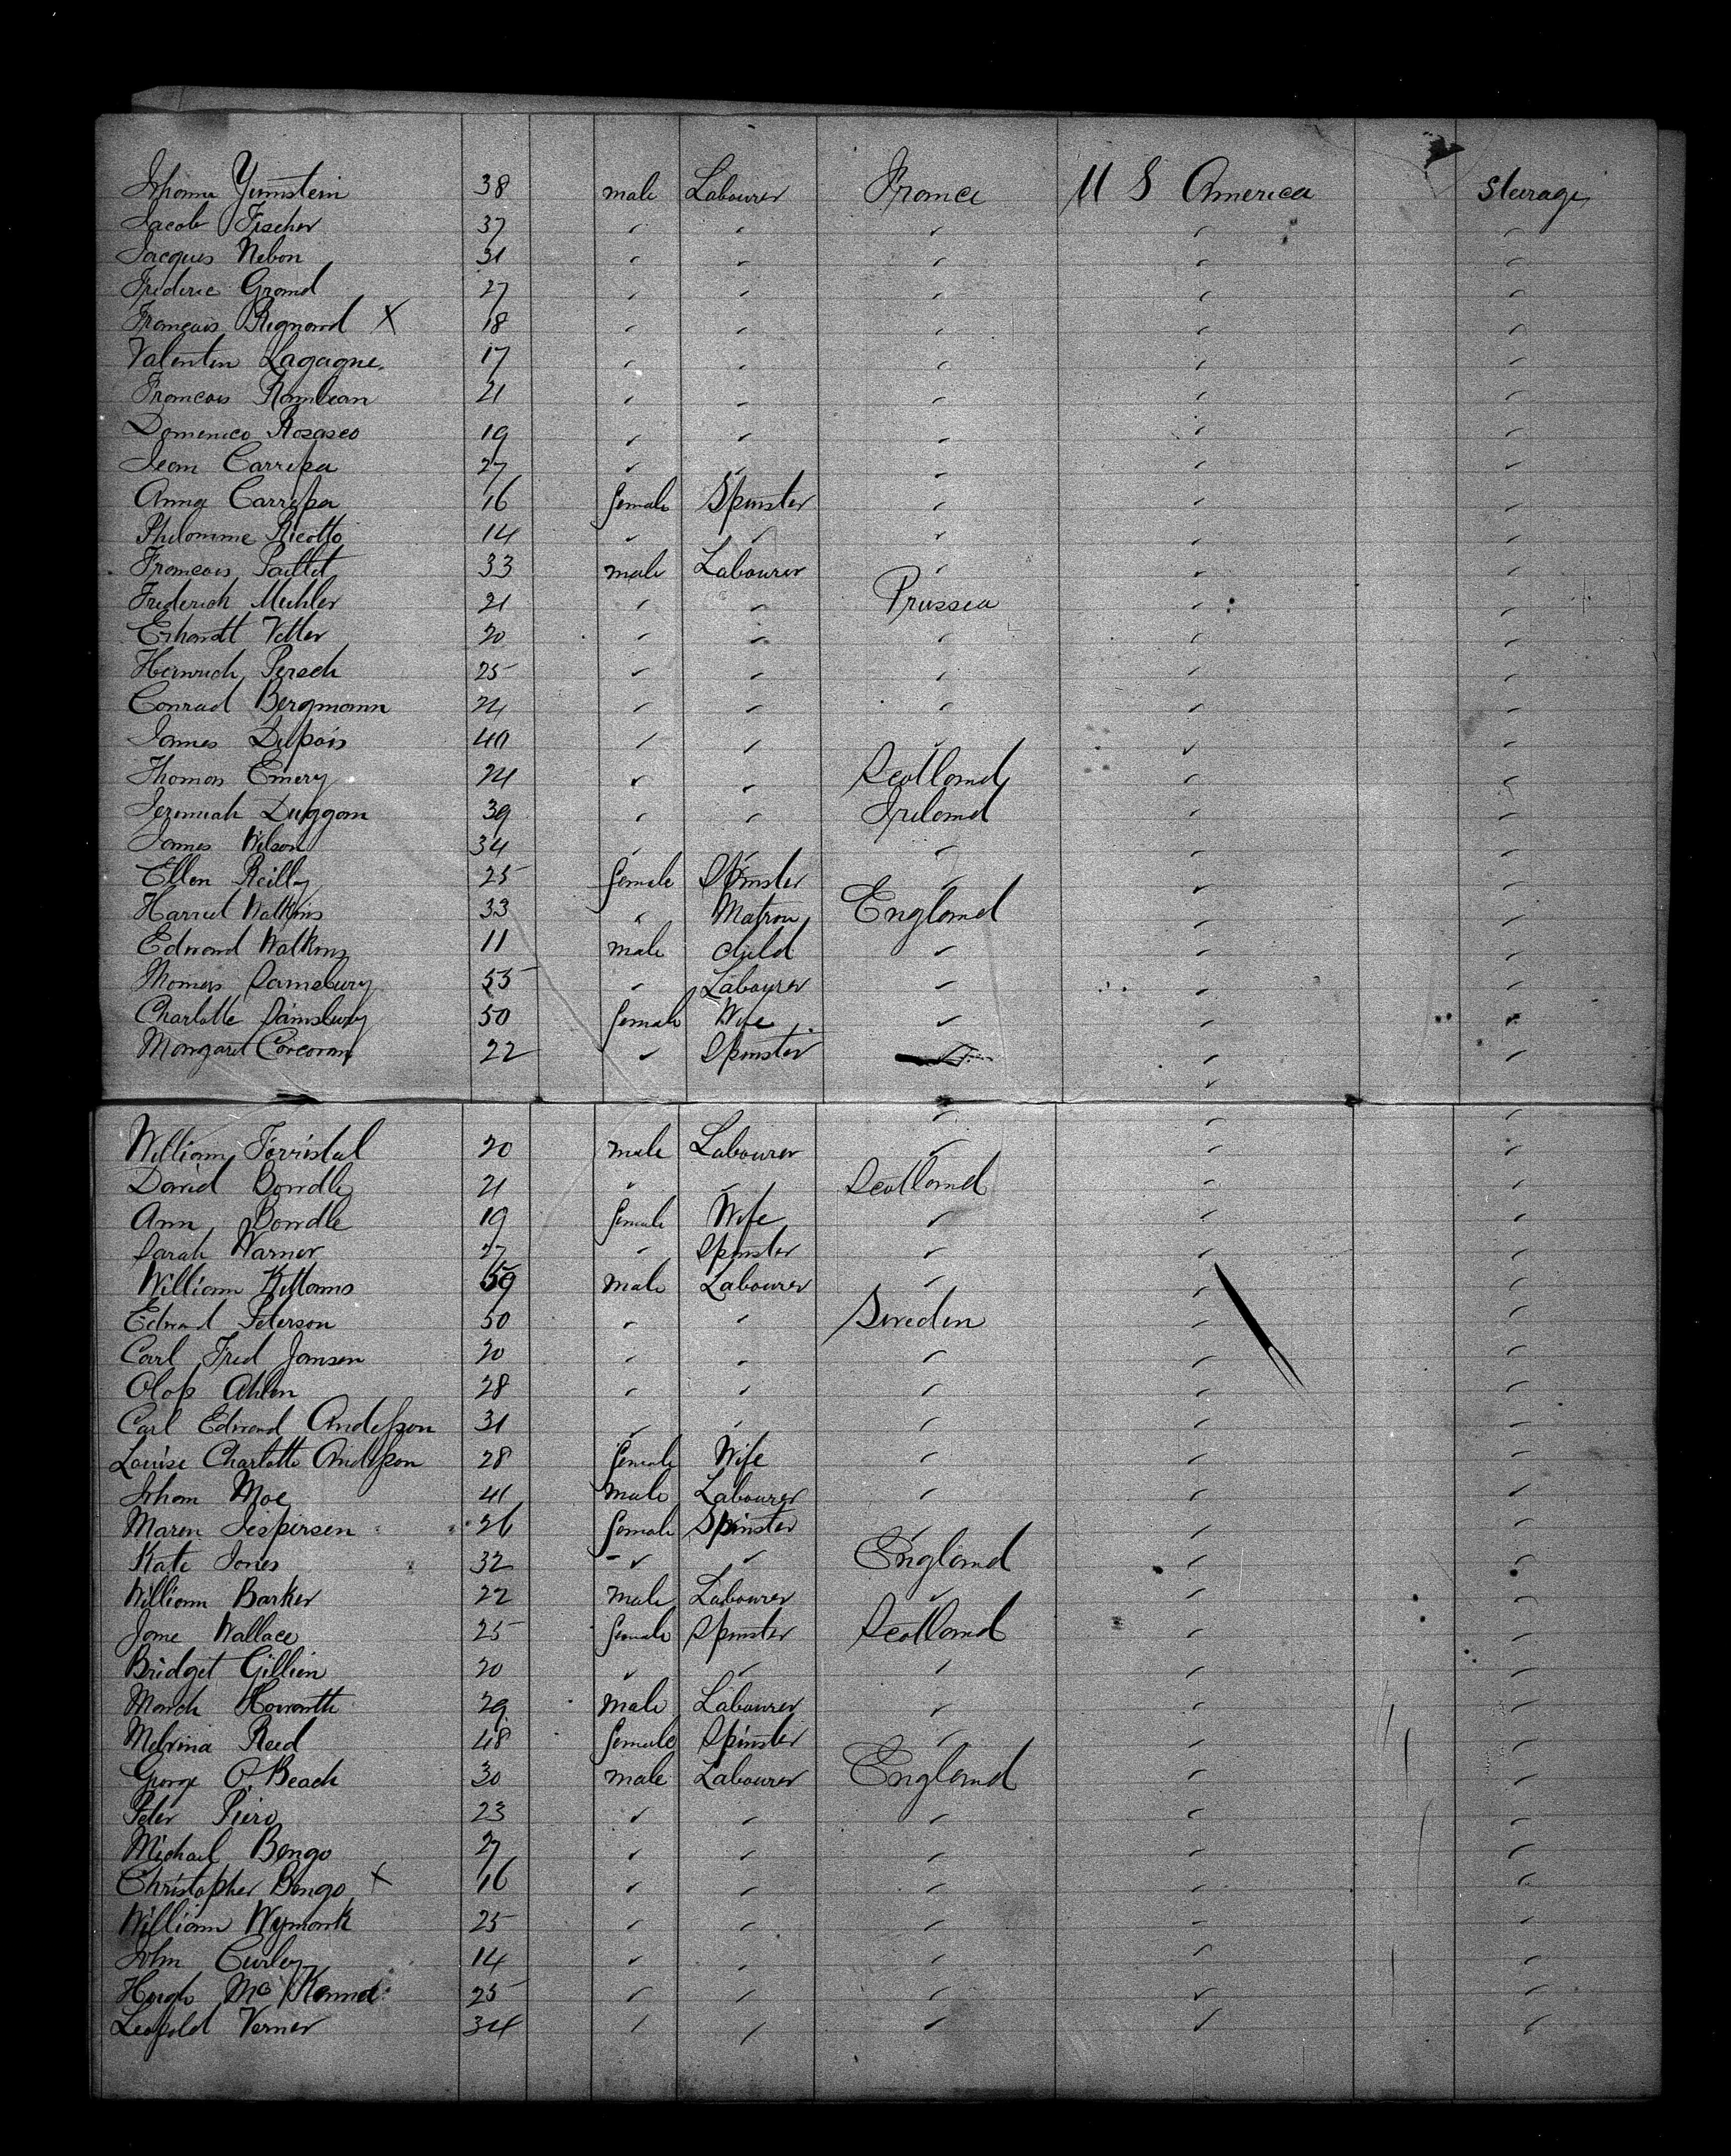 Johann Yumstein 38 male Labourer France U S America Steerage
Jacob Fischer 37 " " " " "
Jacques Nebon 31 " " " " "
Frederic Grand 27 " " " " "
François Regnard X 18 " " " " "
Valentin Lagagne 17 " " " " "
Francois Rambeau 21 " " " " "
Domenico Rosasco 19 " " " " "
Jean Carrepa 27 " " " " "
Anna Carrepa 16 female Spinster " " "
Philomme Ricotto 14 " " " " "
Francois Paillet 33 male Labourer " " "
Frederick Muhler 21 " " Prussia " "
Erhardt Vetter 20 " " " " "
Heinrich Persch 25 " " " " "
Conrad Bergmann 24 " " " " "
James Dupois 40 " " " " "
Thomas Emery 24 " " Scotland " "
Jeremiah Duggan 39 " " Ireland " "
James Wilson 34 " " " " "
Ellen Reilly 25 female Spinster " " "
Harriet Watkins 33 " Matron England " "
Edward Watkins 11 male child " " "
Thomas Sainsbury 55 " Labourer " " "
Charlotte Sainsbury 50 female Wife " " "
Margaret Corcoran 22 " Spinster " " "
William Forristal 20 male Labourer " " "
David Bowdle 21 " " Scotland " "
Ann Bowdle 19 female Wife " " "
Sarah Warner 27 " Spinster " " "
William Kittams 59 male Labourer " " "
Edward Peterson 50 " " Sweden " "
Carl Fred Jansen 20 " " " " "
Olof Ahlen 28 " " " " "
Carl Edward Andersson 31 " " " " "
Louise Charlotte Andersson 28 female Wife " " "
Johan Moe 41 male Labourer " " "
Maren Jespersen 26 female Spinster " " "
Kate Jones 32 " " England " "
William Barker 22 male Labourer " " "
Jane Wallace 25 female Spinster Scotland " "
Bridget Gillien 20 " " " " "
March Howarth 29 male Labourer " " "
Melvina Reed 48 female Spinster " " "
George O. Beach 30 male Labourer England " "
Peter Piero 23 " " " " "
Michael Bongo 27 " " " " "
Christopher Bongo X 16 " " " " "
William Wymark 25 " " " " "
John Curley 14 " " " " "
Hugh Mc Kenna 25 " " " " "
Leopold Verner 34 " " " " "